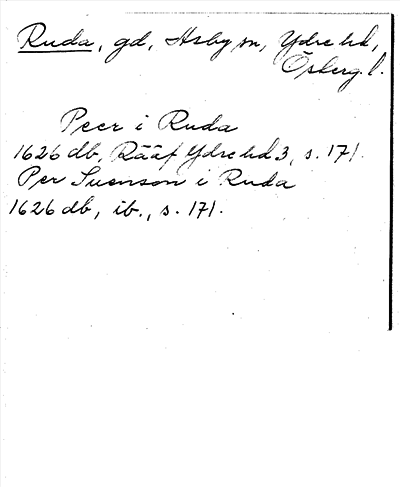 Ruda, gd, Asby sn, Ydre hd,
Österg. l.
Peer i Ruda
1626 db, Rääf Ydre hd 3, s. 171.
Per Suenson i Ruda
1626 db, ib., s. 171.